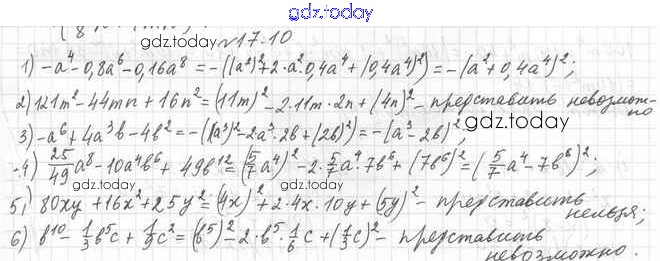 gdz.today
№17.10
1) -a⁴-0,8a⁶-0,16a⁸=-((a²)²+2·a²·0,4a⁴+(0,4a⁴)²)=-(a²+0,4a⁴)²;
2) 121m²-44mn+16n²=(11m)²-2·11m·2n+(4n)²- представить невозмож-
но
3) -a⁶+4a³b-4b²=-((a³)²-2a³·2b+(2b)²)=-(a³-2b)²;
4) 25/49 a⁸-10a⁴b⁶+49b¹²=(5/7 a⁴)²-2·5/7 a⁴·7b⁶+(7b⁶)²=(5/7 a⁴-7b⁶)²;
5) 80xy+16x²+25y²=(4x)²+2·4x·10y+(5y)²- представить
нельзя;
6) b¹⁰-1/3 b⁵c+1/9 c²=(b⁵)²-2·b⁵·1/6 c+(1/3 c)²- представить
невозможно.